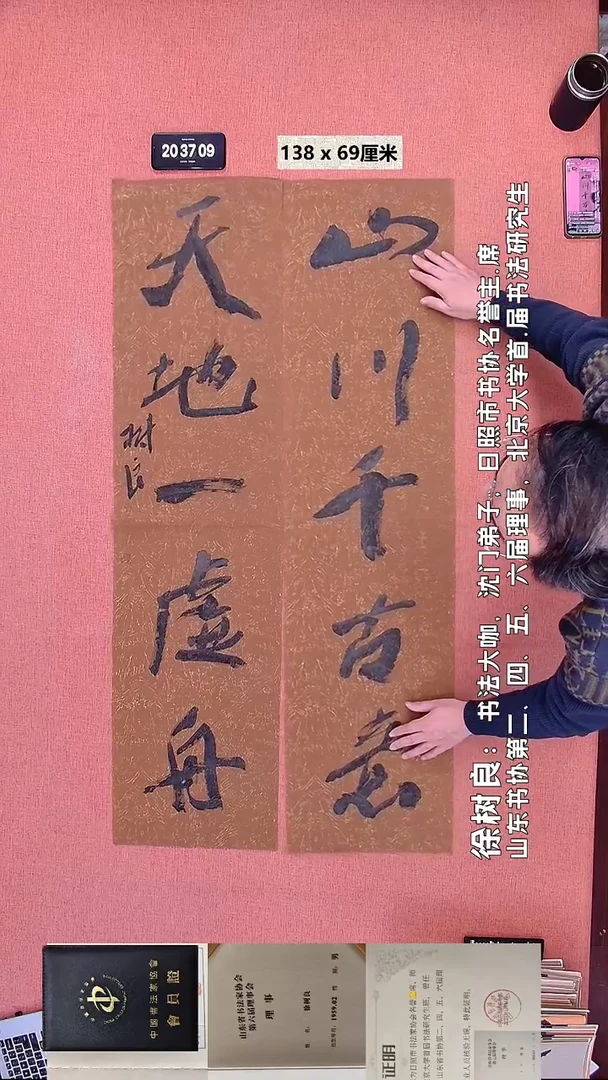 20 37 09
138 x 69厘米
山川千古意
天地一虚舟
树良
徐树良：书法大咖，沈门弟子，日照市书协名誉主.席
山东书协第二、四、五、六届理事，北京大学首.届书法研究生
中国书法家协会
會員證
山东省书法家协会
第六届理事会
理事
姓名：徐树良
1959.02 性别：男
证明